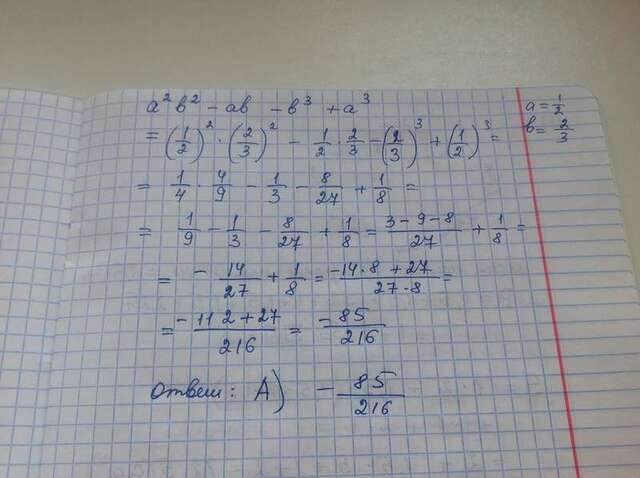 a²b² - ab - b³ + a³
a = 1/2
b = 2/3
= (1/2)² · (2/3)² - 1/2 · 2/3 - (2/3)³ + (1/2)³ =
= 1/4 · 4/9 - 1/3 - 8/27 + 1/8 =
= 1/9 - 1/3 - 8/27 + 1/8 = (3 - 9 - 8)/27 + 1/8 =
= - 14/27 + 1/8 = (-14·8 + 27)/(27·8) =
= (-112 + 27)/216 = -85/216
Ответ: А) - 85/216